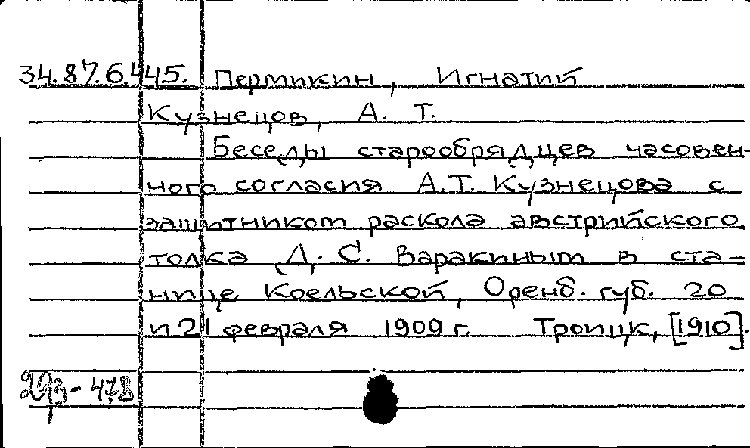 34.87.6.445. Пермикин, Игнатий
Кузнецов, А. Т.
Беседы старообрядцев часовен-
ного согласия А.Т. Кузнецова с
защитником раскола австрийского
толка Д. С. Варакиным в ста-
нице Коельской, Оренб. губ. 20
и 21 февраля 1909 г. Троицк, [1910].